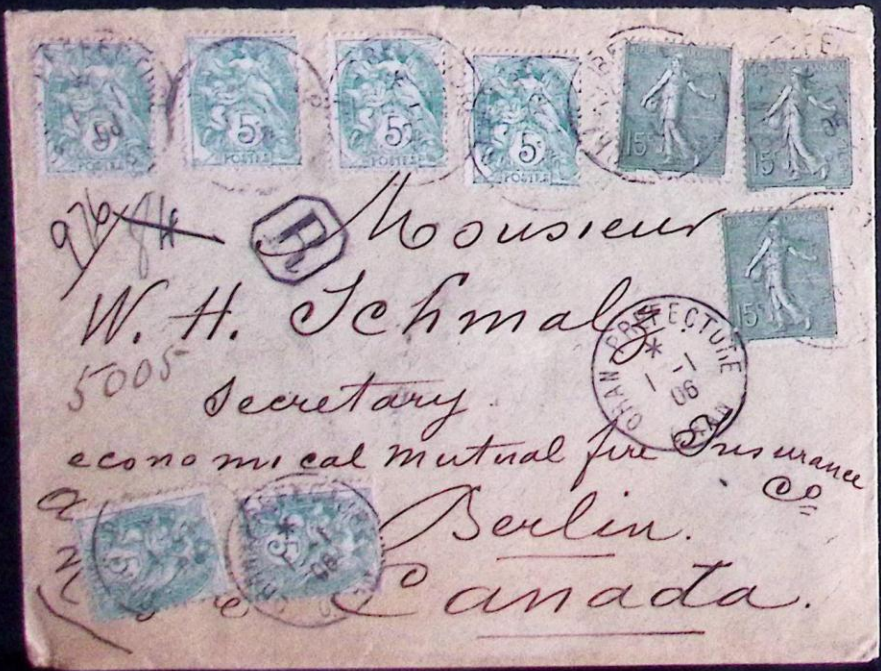 5 5 5 5 15 15
POSTES POSTES POSTES POSTES
976 R Monsieur
W. H. Schmalz. 15
ORAN PREFECTURE
* 1 -1 06
ORAN
5005
Secretary
economical mutual fire Insurance
Co
Berlin.
5 5
Canada.